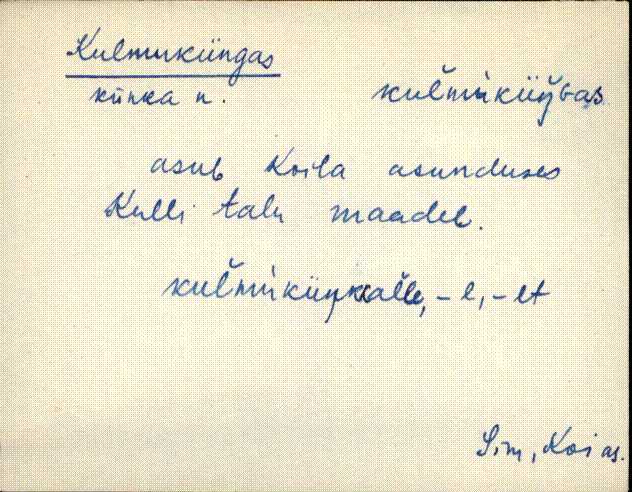 Kulmuküngas
künka n. kul̆mùküŋ̆Gas
asub Koila asunduses
Kulli talu maadel.
kul̆mùküŋkkalle, -l, -lt
Sim, Koi as.